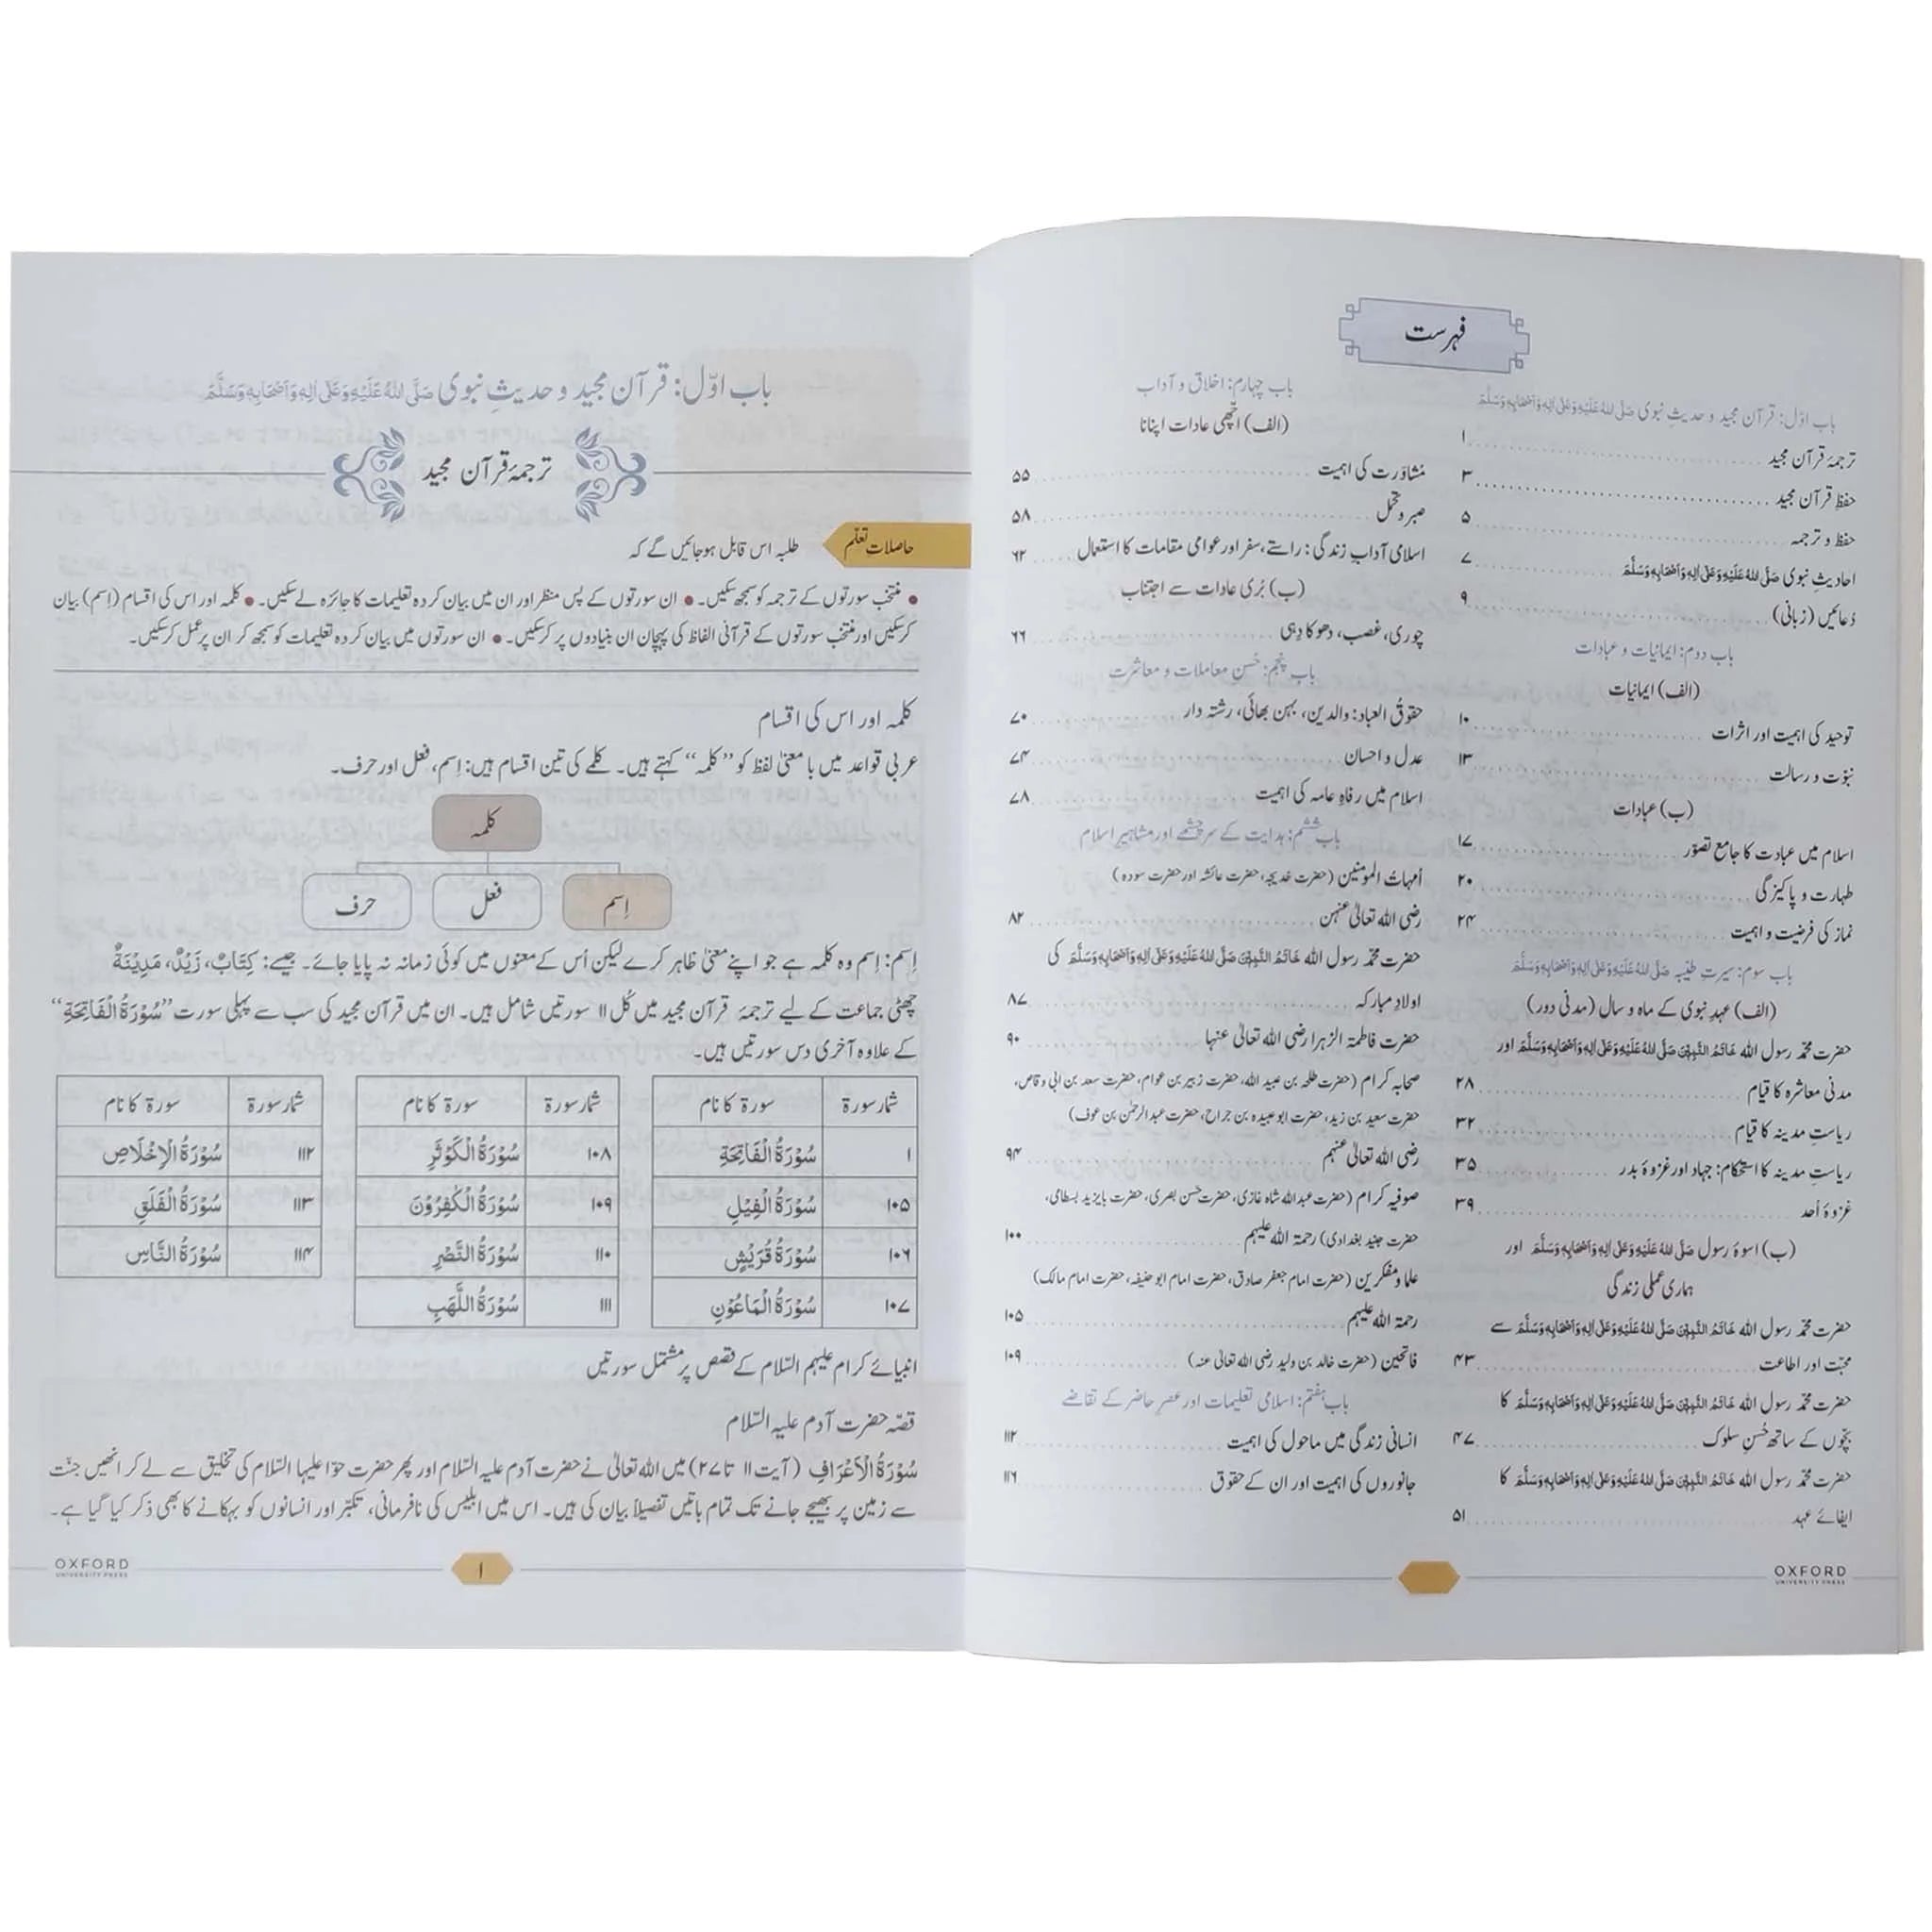 فہرست
باب اوّل: قرآن مجید و حدیثِ نبوی صَلَّی اللہُ عَلَیْہِ وَعَلٰی اٰلِہٖ وَاَصْحَابِہٖ وَسَلَّمَ
ترجمۂ قرآن مجید ۱
حفظِ قرآن مجید ۳
حفظ و ترجمہ ۵
احادیثِ نبوی صَلَّی اللہُ عَلَیْہِ وَعَلٰی اٰلِہٖ وَاَصْحَابِہٖ وَسَلَّمَ ۷
دُعائیں (زبانی) ۹
باب دوم: ایمانیات و عبادات
(الف) ایمانیات
توحید کی اہمیت اور اثرات ۱۰
نبوّت و رسالت ۱۳
(ب) عبادات
اسلام میں عبادت کا جامع تصوّر ۱۷
طہارت و پاکیزگی ۲۰
نماز کی فرضیت و اہمیت ۲۴
باب سوم: سیرتِ طیّبہ صَلَّی اللہُ عَلَیْہِ وَعَلٰی اٰلِہٖ وَاَصْحَابِہٖ وَسَلَّمَ
(الف) عہدِ نبوی کے ماہ و سال (مدنی دور)
حضرت محمّد رسول اللہ خَاتَمُ النَّبِیّٖنَ صَلَّی اللہُ عَلَیْہِ وَعَلٰی اٰلِہٖ وَاَصْحَابِہٖ وَسَلَّمَ اور
مدنی معاشرہ کا قیام ۲۸
ریاستِ مدینہ کا قیام ۳۲
ریاستِ مدینہ کا استحکام: جہاد اور غزوۂ بدر ۳۵
غزوۂ اُحد ۳۹
(ب) اسوۂ رسول صَلَّی اللہُ عَلَیْہِ وَعَلٰی اٰلِہٖ وَاَصْحَابِہٖ وَسَلَّمَ اور
ہماری عملی زندگی
حضرت محمّد رسول اللہ خَاتَمُ النَّبِیّٖنَ صَلَّی اللہُ عَلَیْہِ وَعَلٰی اٰلِہٖ وَاَصْحَابِہٖ وَسَلَّمَ سے
محبّت اور اطاعت ۴۳
حضرت محمّد رسول اللہ خَاتَمُ النَّبِیّٖنَ صَلَّی اللہُ عَلَیْہِ وَعَلٰی اٰلِہٖ وَاَصْحَابِہٖ وَسَلَّمَ کا
بچّوں کے ساتھ حُسنِ سلوک ۴۷
حضرت محمّد رسول اللہ خَاتَمُ النَّبِیّٖنَ صَلَّی اللہُ عَلَیْہِ وَعَلٰی اٰلِہٖ وَاَصْحَابِہٖ وَسَلَّمَ کا
ایفائے عہد ۵۱
باب چہارم: اخلاق و آداب
(الف) اچھی عادات اپنانا
مُشاوَرت کی اہمیت ۵۵
صبر و تحمّل ۵۸
اسلامی آدابِ زندگی: راستے، سفر اور عوامی مقامات کا استعمال ۶۲
(ب) بُری عادات سے اجتناب
چوری، غصب، دھوکا دہی ۶۶
باب پنجم: حُسنِ معاملات و معاشرت
حقوقُ العباد: والدین، بہن بھائی، رشتہ دار ۷۰
عدل و احسان ۷۴
اسلام میں رفاہِ عامہ کی اہمیت ۷۸
باب ششم: ہدایت کے سرچشمے اور مشاہیرِ اسلام
اُمہاتُ المومنین (حضرت خدیجہ، حضرت عائشہ اور حضرت سودہ)
رضی اللہ تعالیٰ عنہن ۸۲
حضرت محمّد رسول اللہ خَاتَمُ النَّبِیّٖنَ صَلَّی اللہُ عَلَیْہِ وَعَلٰی اٰلِہٖ وَاَصْحَابِہٖ وَسَلَّمَ کی
اولادِ مبارکہ ۸۷
حضرت فاطمۃ الزہرا رضی اللہ تعالیٰ عنہا ۹۰
صحابہ کرام (حضرت طلحہ بن عبید اللہ، حضرت زبیر بن عوام، حضرت سعد بن ابی وقاص،
حضرت سعید بن زید، حضرت ابو عبیدہ بن جراح، حضرت عبدالرحمٰن بن عوف)
رضی اللہ تعالیٰ عنہم ۹۴
صوفیہ کرام (حضرت عبداللہ شاہ غازی، حضرت حسن بصری، حضرت بایزید بسطامی،
حضرت جنید بغدادی) رحمۃ اللہ علیہم ۱۰۰
علما و مفکرین (حضرت امام جعفر صادق، حضرت امام ابو حنیفہ، حضرت امام مالک)
رحمۃ اللہ علیہم ۱۰۵
فاتحین (حضرت خالد بن ولید رضی اللہ تعالیٰ عنہ) ۱۰۹
باب ہفتم: اسلامی تعلیمات اور عصرِ حاضر کے تقاضے
انسانی زندگی میں ماحول کی اہمیت ۱۱۲
جانوروں کی اہمیت اور ان کے حقوق ۱۱۶
OXFORD
UNIVERSITY PRESS
باب اوّل: قرآن مجید و حدیثِ نبوی صَلَّی اللہُ عَلَیْہِ وَعَلٰی اٰلِہٖ وَاَصْحَابِہٖ وَسَلَّمَ
ترجمۂ قرآن مجید
حاصلاتِ تعلّم
طلبہ اس قابل ہوجائیں گے کہ
• منتخب سورتوں کے ترجمہ کو سمجھ سکیں۔ • ان سورتوں کے پس منظر اور ان میں بیان کردہ تعلیمات کا جائزہ لے سکیں۔ • کلمہ اور اس کی اقسام (اِسم) بیان
کرسکیں اور منتخب سورتوں کے قرآنی الفاظ کی پہچان ان بنیادوں پر کرسکیں۔ • ان سورتوں میں بیان کردہ تعلیمات کو سمجھ کر ان پر عمل کرسکیں۔
کلمہ اور اس کی اقسام
عربی قواعد میں با معنیٰ لفظ کو ’’کلمہ‘‘ کہتے ہیں۔ کلمے کی تین اقسام ہیں: اِسم، فعل اور حرف۔
کلمہ
اِسم فعل حرف
اِسم: اِسم وہ کلمہ ہے جو اپنے معنیٰ ظاہر کرے لیکن اُس کے معنوں میں کوئی زمانہ نہ پایا جائے۔ جیسے: کِتَابٌ، زَیْدٌ، مَدِیْنَۃٌ
چھٹی جماعت کے لیے ترجمۂ قرآن مجید میں کُل ۱۱ سورتیں شامل ہیں۔ ان میں قرآن مجید کی سب سے پہلی سورت ’’سُوْرَۃُ الْفَاتِحَۃِ‘‘
کے علاوہ آخری دس سورتیں ہیں۔
شمار سورۃ سورۃ کا نام شمار سورۃ سورۃ کا نام شمار سورۃ سورۃ کا نام
۱ سُوْرَۃُ الْفَاتِحَۃِ ۱۰۸ سُوْرَۃُ الْکَوْثَرِ ۱۱۲ سُوْرَۃُ الْاِخْلَاصِ
۱۰۵ سُوْرَۃُ الْفِیْلِ ۱۰۹ سُوْرَۃُ الْکٰفِرُوْنَ ۱۱۳ سُوْرَۃُ الْفَلَقِ
۱۰۶ سُوْرَۃُ قُرَیْشٍ ۱۱۰ سُوْرَۃُ النَّصْرِ ۱۱۴ سُوْرَۃُ النَّاسِ
۱۰۷ سُوْرَۃُ الْمَاعُوْنِ ۱۱۱ سُوْرَۃُ اللَّھَبِ
انبیائے کرام علیہم السّلام کے قصص پر مشتمل سورتیں
قصّہ حضرت آدم علیہ السّلام
سُوْرَۃُ الْاَعْرَافِ (آیت ۱۱ تا ۲۷) میں اللہ تعالیٰ نے حضرت آدم علیہ السّلام اور پھر حضرت حوّا علیہا السّلام کی تخلیق سے لے کر انھیں جنّت
سے زمین پر بھیجے جانے تک تمام باتیں تفصیلاً بیان کی ہیں۔ اس میں ابلیس کی نافرمانی، تکبّر اور انسانوں کو بہکانے کا بھی ذکر کیا گیا ہے۔
۱
OXFORD
UNIVERSITY PRESS